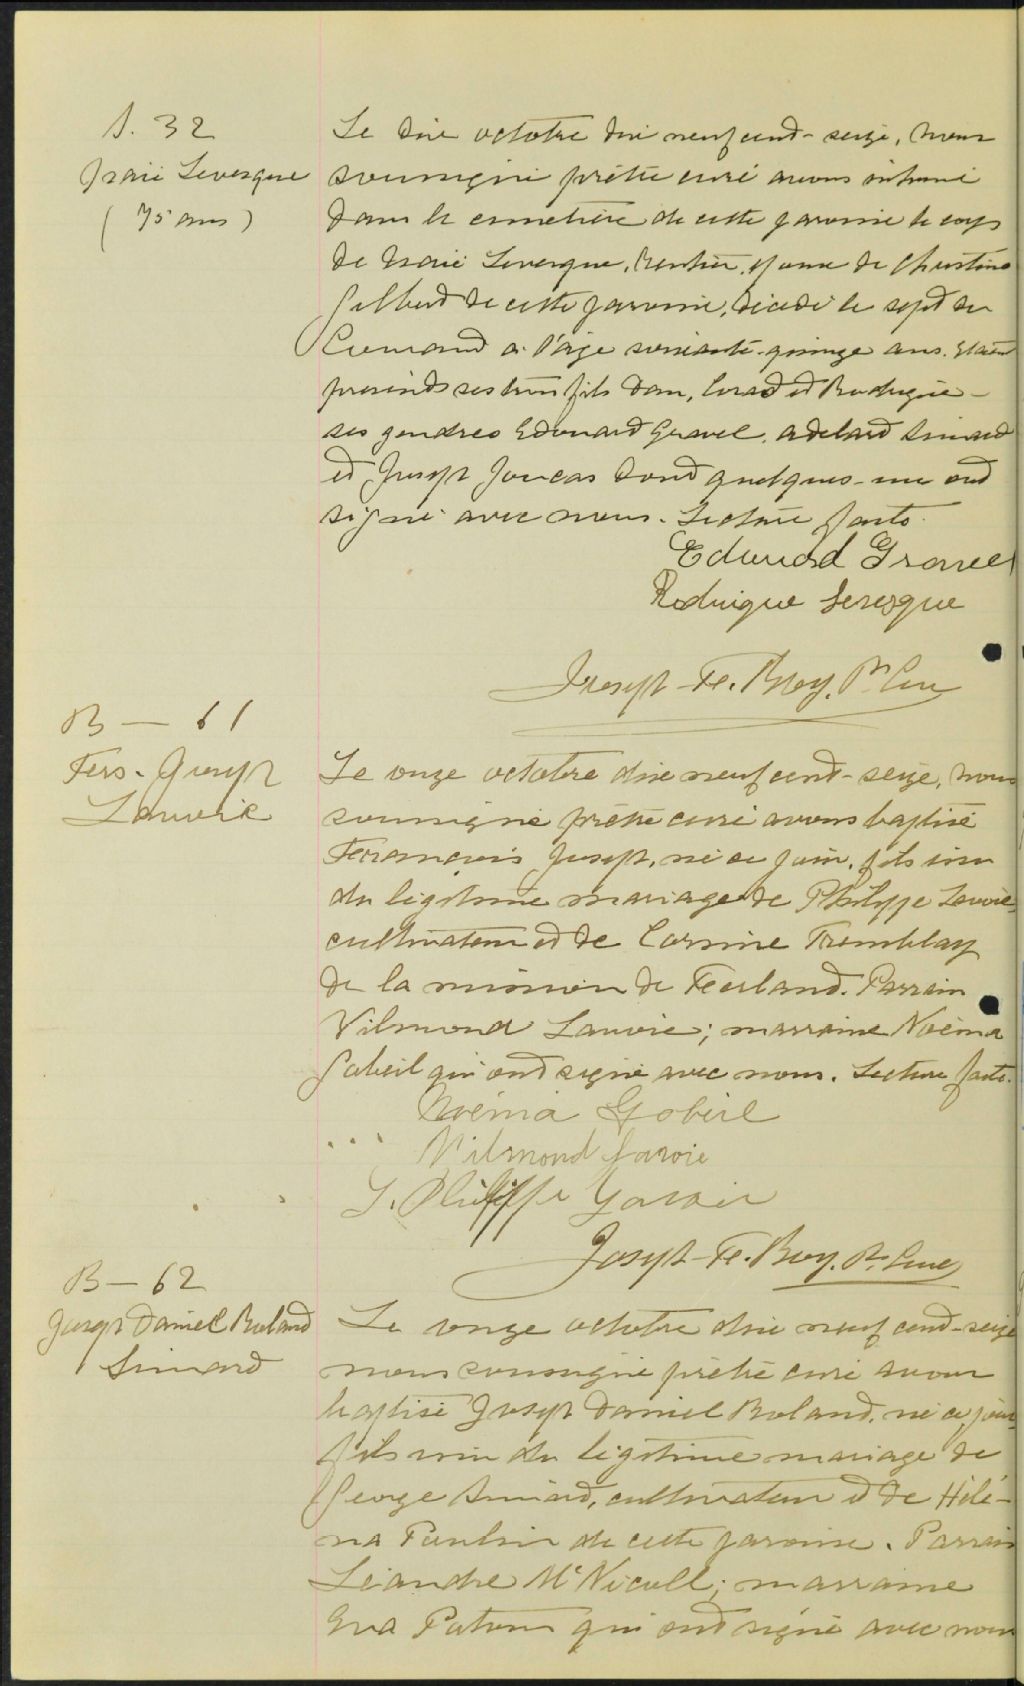 S. 32
Isaïe Levesque
(75 ans)
Le dix octobre dix neuf cent-seize, nous
soussigné prêtre curé avons inhumé
dans le cimetière de cette paroisse le corps
de Isaïe Levesque, rentier, époux de Christine
Gilbert de cette paroisse, décédé le sept du
courant à l'âge soixante-quinze ans. Etaient
présents ses trois fils Dan, et Rodrigue -
ses gendres Edouard Gravel, Adelard Simard
et Joseph Joncas dont quelques-uns ont
signé avec nous. Lecture faite.
Edouard Gravel
Rodrigue Levesque
Joseph-Fe. Roy, Ptre Curé
B — 61
Frs. Joseph
Lavoie
Le onze octobre dix neuf cent-seize, nous
soussigné prêtre curé avons baptisé
François Joseph, né ce jour, fils issu
du légitime mariage de Philippe Lavoie,
cultivateur et de Corinne Tremblay
de la mission de Ferland. Parrain
Vilmond Lavoie; marraine Noëma
Gobeil qui ont signé avec nous. Lecture faite.
Noéma Gobeil
Vilmond Lavoie
J. Philippe Lavoie
Joseph-Fe. Roy, Ptre Curé
B — 62
Joseph Daniel Roland
Simard
Le onze octobre dix neuf cent-seize
nous soussigné prêtre curé avons
baptisé Joseph Daniel Roland, né ce jour,
fils issu du légitime mariage de
George Simard, cultivateur et de Hélé-
na de cette paroisse. Parrain
Léandre McNicoll; marraine
Eva qui ont signé avec nous